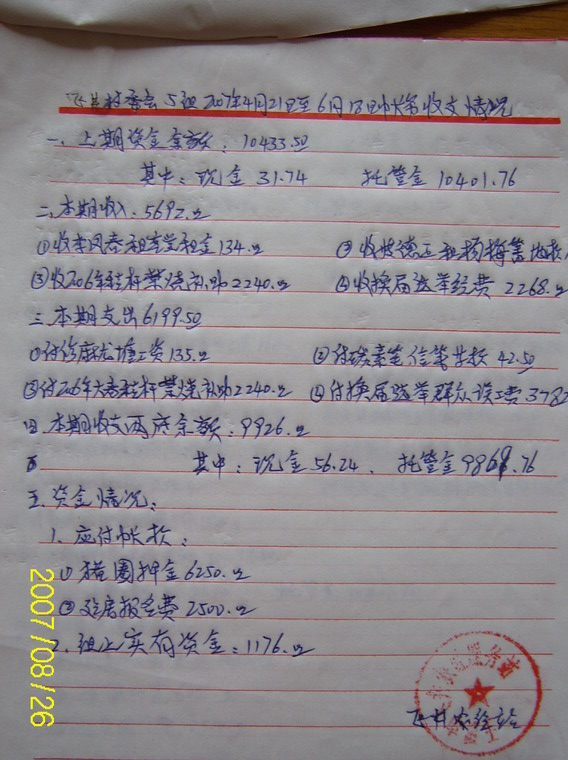 飞井村委会5组2007年4月21日至6月18日帐务收支情况
一、上期资金余额：10433.50
其中：现金31.74 托管金10401.76
二、本期收入：5692.00
①收 租金134.00 ③收 德正租杨梅 地款
③收2006年秸秆禁烧补助2240.00 ④收换届选举经费2268.00
三、本期支出6199.50
①付 麻龙塘工资135.00 ②付 信笺 42.50
③付2006年大春秸秆禁烧补助2240.00 ④付换届选举群众误工费378
四、本期收支两底余额：9926.00
其中：现金56.24、托管金9869.76
五、资金情况：
1、应付帐款：
①猪圈押金6250.00
②建房报名费2500.00
2、组上实有资金：1176.00
飞井农经站
2007/08/26